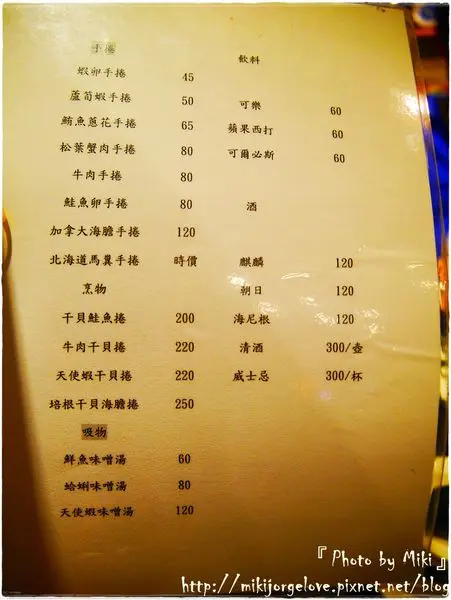 手捲
蝦卵手捲 45
蘆筍蝦手捲 50
鮪魚蔥花手捲 65
松葉蟹肉手捲 80
牛肉手捲 80
鮭魚卵手捲 80
加拿大海膽手捲 120
北海道馬糞手捲 時價
烹物
干貝鮭魚捲 200
牛肉干貝捲 220
天使蝦干貝捲 220
培根干貝海膽捲 250
吸物
鮮魚味噌湯 60
蛤蜊味噌湯 80
天使蝦味噌湯 120
飲料
可樂 60
蘋果西打 60
可爾必斯 60
酒
麒麟 120
朝日 120
海尼根 120
清酒 300/壺
威士忌 300/杯
『 Photo by Miki 』
http://mikijorgelove.pixnet.net/blog